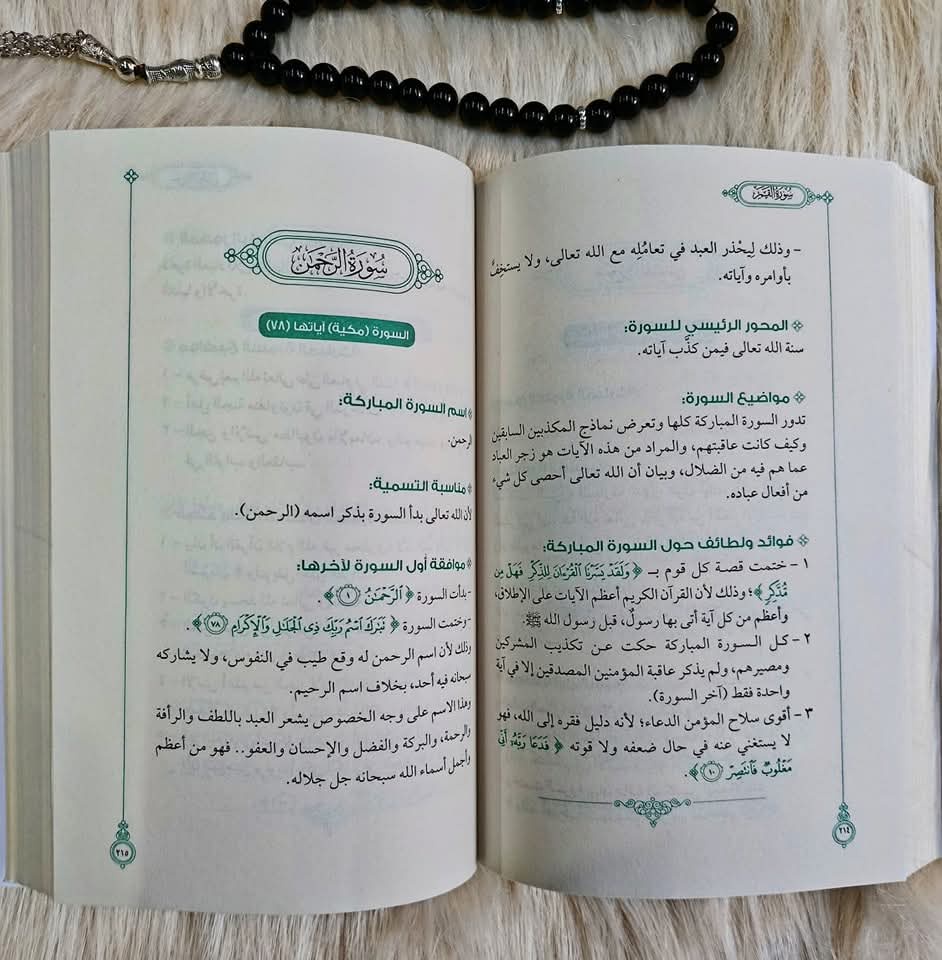 سورة القمر
- وذلك ليحْذر العبد في تعامُلِه مع الله تعالى، ولا يستخِفَّ
بأوامره وآياته.
المحور الرئيسي للسورة:
سنة الله تعالى فيمن كذَّب آياته.
مواضيع السورة:
تدور السورة المباركة كلها وتعرض نماذج المكذبين السابقين
وكيف كانت عاقبتهم، والمراد من هذه الآيات هو زجر العباد
عما هم فيه من الضلال، وبيان أن الله تعالى أحصى كل شيء
من أفعال عباده.
فوائد ولطائف حول السورة المباركة:
١ - ختمت قصة كل قوم بـ ﴿ وَلَقَدْ يَسَّرْنَا ٱلْقُرْءَانَ لِلذِّكْرِ فَهَلْ مِن
مُّدَّكِرٍ ﴾؛ وذلك لأن القرآن الكريم أعظم الآيات على الإطلاق،
وأعظم من كل آية أتى بها رسولٌ، قبل رسول الله ﷺ.
٢ - كـل السـورة المباركة حكت عـن تكذيب المشركين
ومصيرهم، ولم يذكر عاقبة المؤمنين المصدقين إلا في آية
واحدة فقط (آخر السورة).
٣ - أقوى سلاح المؤمن الدعاء؛ لأنه دليل فقره إلى الله، فهو
لا يستغني عنه في حال ضعفه ولا قوته ﴿ فَدَعَا رَبَّهُۥٓ أَنِّى
مَغْلُوبٌ فَٱنتَصِرْ ١٠ ﴾.
٢١٤
سورة الرحمن
السورة (مكية) آياتها (٧٨)
اسم السورة المباركة:
الرحمن.
مناسبة التسمية:
لأن الله تعالى بدأ السورة بذكر اسمه (الرحمن).
موافقة أول السورة لآخرها:
- بدأت السورة ﴿ ٱلرَّحْمَٰنُ ١ ﴾.
- وختمت السورة ﴿ تَبَٰرَكَ ٱسْمُ رَبِّكَ ذِى ٱلْجَلَٰلِ وَٱلْإِكْرَامِ ٧٨ ﴾.
وذلك لأن اسم الرحمن له وقع طيب في النفوس، ولا يشاركه
سبحانه فيه أحد، بخلاف اسم الرحيم.
وهذا الاسم على وجه الخصوص يشعر العبد باللطف والرأفة
والرحمة، والبركة والفضل والإحسان والعفو.. فهو من أعظم
وأجمل أسماء الله سبحانه جل جلاله.
٢١٥